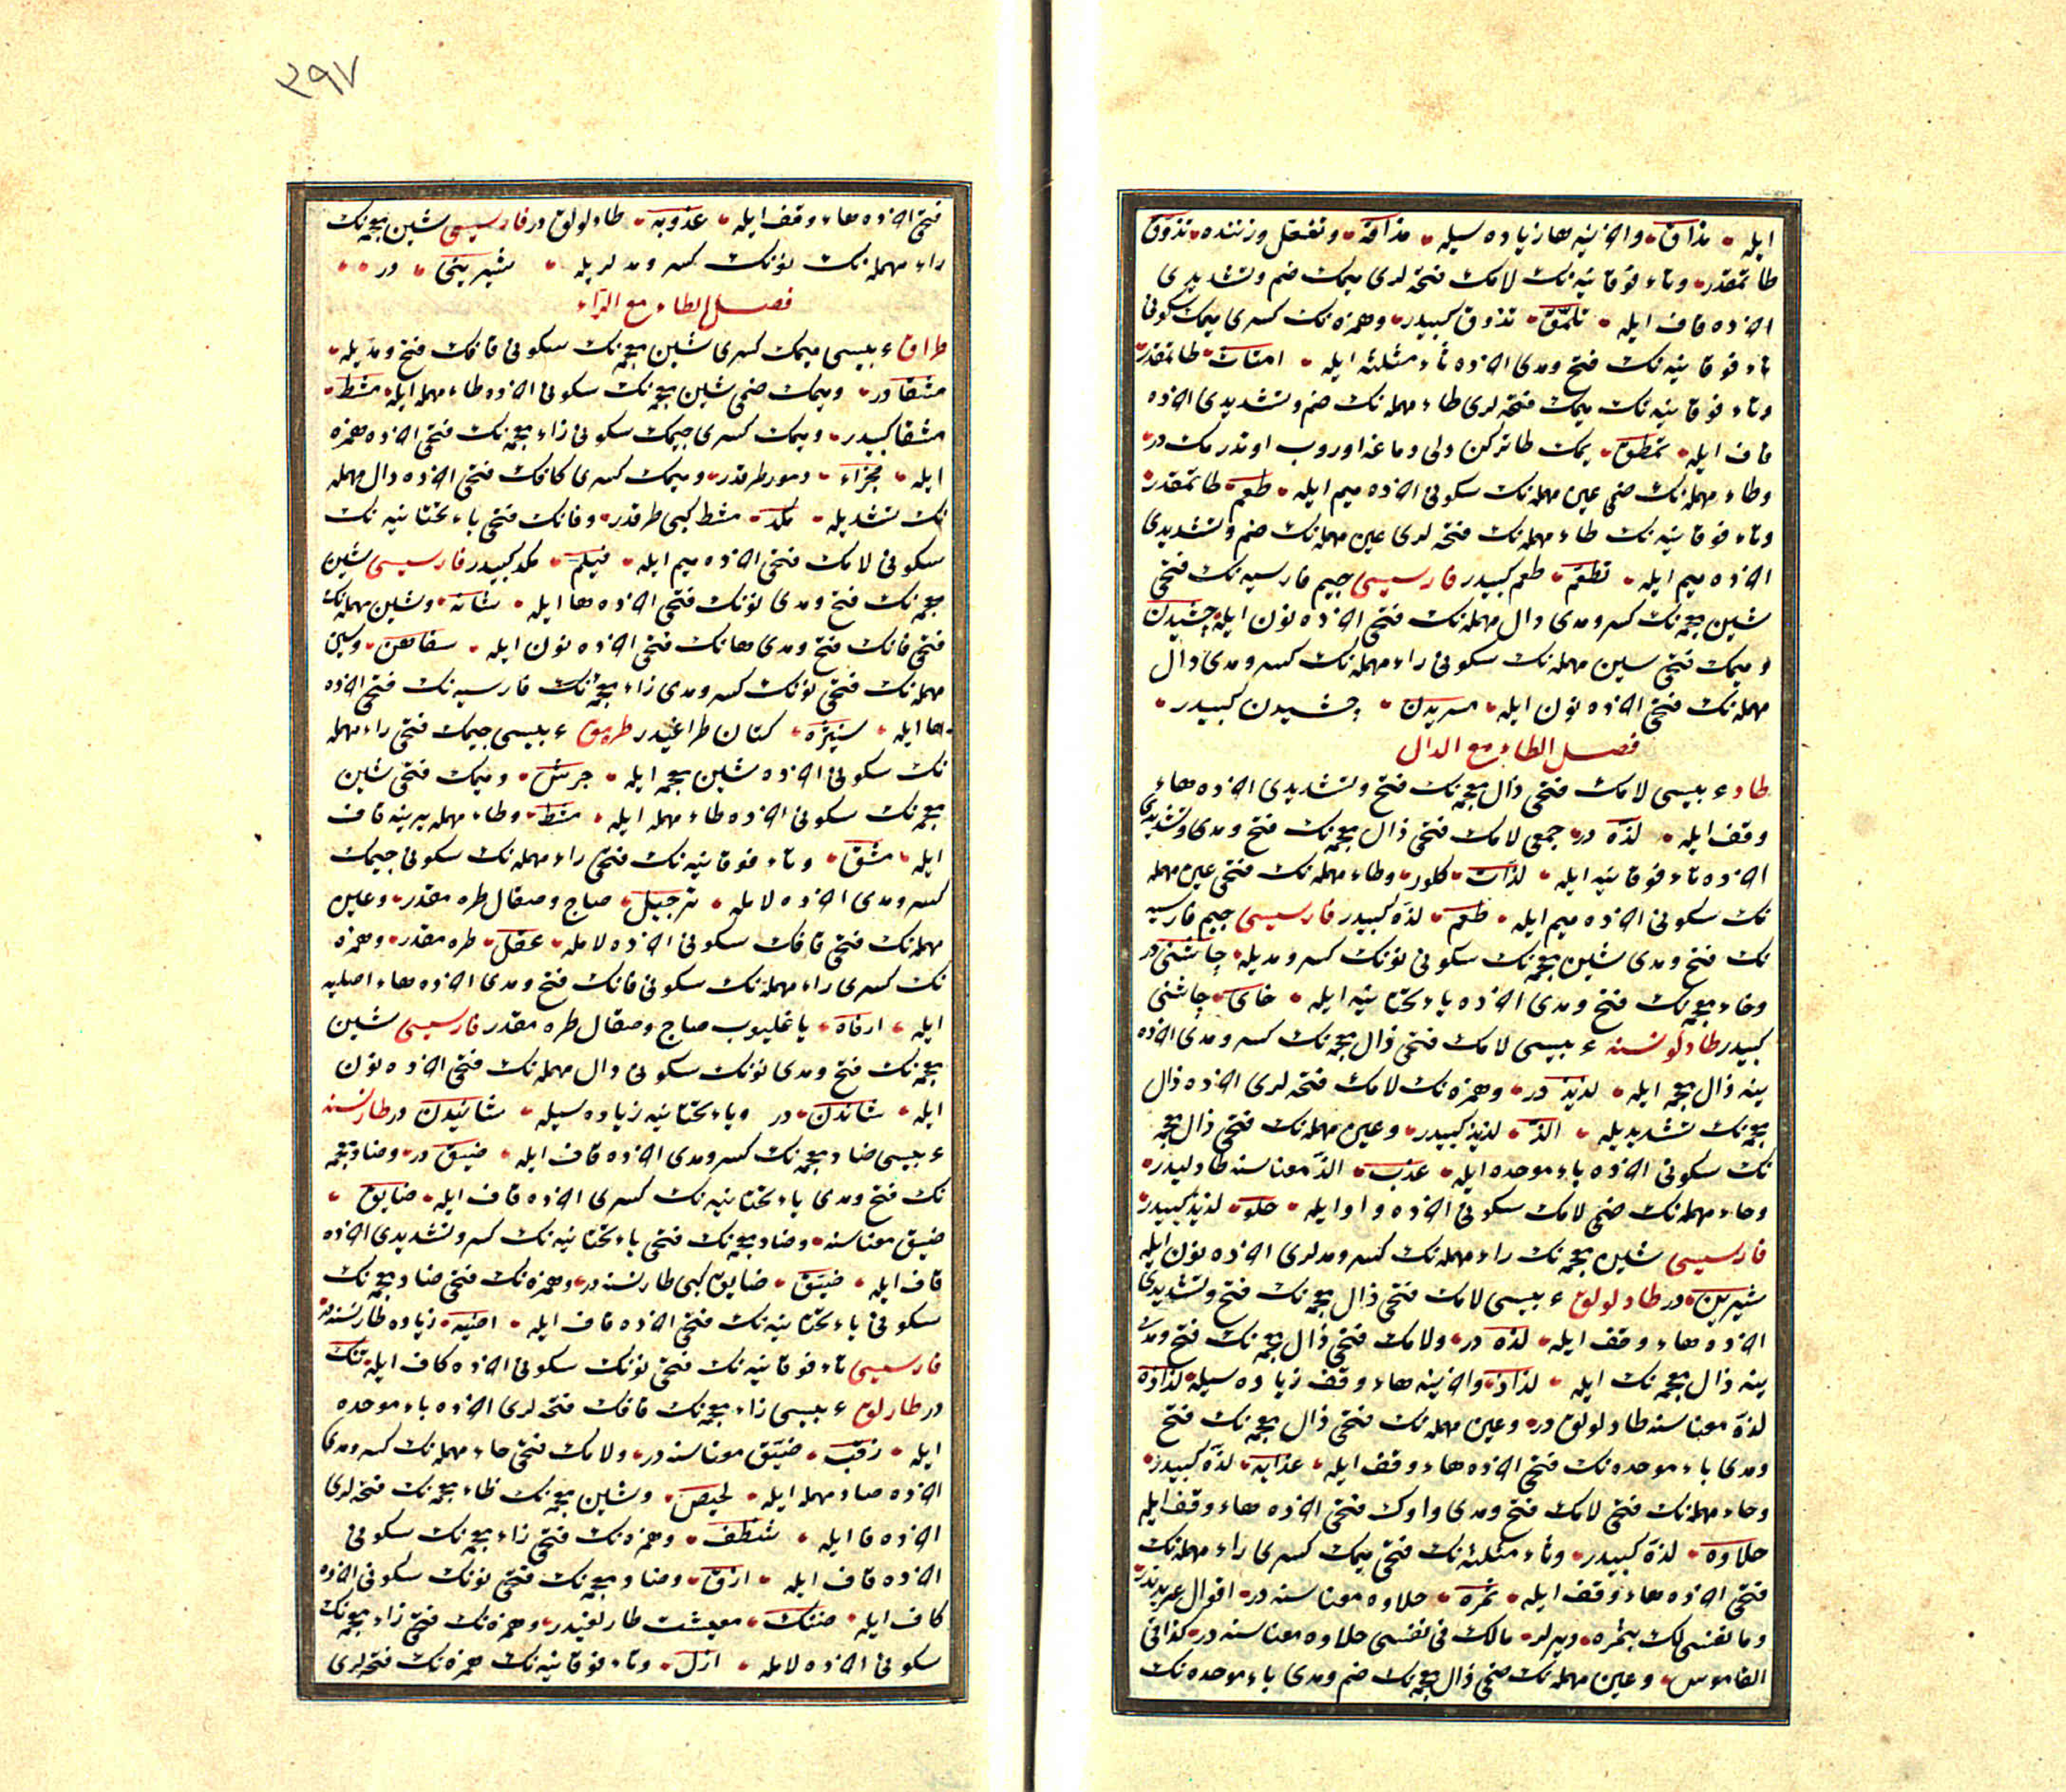 ایله مذاق واخرینه ها زیاده سیله مذاقه وتفعّل وزننده تذوّق
طاتمقدر وتاء فوقانیه نك لامك فتحه لری میمك ضم وتشدیدی
اخرده قاف ایله تلمّق تذوق كبیدر وهمزه نك كسری میمك سكونی
تاء فوقانیه نك فتح ومدی اخرده ثاء مثلثه ایله طاتمقدر
وتاء فوقانیه نك میمك فتحه لری طاء مهمله نك ضم وتشدیدی اخرده
قاف ایله تمطّق یمك طاتركن دلی دماغه اوروب اوتدرمكدر
وطاء مهمله نك ضمی عین مهمله نك سكونی اخرده میم ایله طعم طاتمقدر
وتاء فوقانیه نك طاء مهمله نك فتحه لری عین مهمله نك ضم وتشدیدی
اخرده میم ایله تطعّم طعم كبیدر فارسیسی جیم فارسیه نك فتحی
شین معجمه نك كسر ومدی دال مهمله نك فتحی اخرده نون ایله چشیدن
ومیمك فتحی سین مهمله نك سكونی راء مهمله نك كسر ومدی دال
مهمله نك فتحی اخرده نون ایله مسریدن چشیدن كبیدر
فصل الطاء مع الدال
طاد عربیسی لامك فتحی ذال معجمه نك فتح وتشدیدی اخرده هاء
وقف ایله لذّه در جمعی لامك فتحی ذال معجمه نك فتح ومدی وتشدیدی
اخرده تاء فوقانیه ایله لذّات كلور وطاء مهمله نك فتحی عین مهمله
نك سكونی اخرده میم ایله طعم لذّه كبیدر فارسیسی جیم فارسیه
نك فتح ومدی شین معجمه نك سكونی نونك كسر ومدیله چاشنی در
وخاء معجمه نك فتح ومدی اخرده یاء تحتانیه ایله خای چاشنی
كبیدر طادلو نسنه عربیسی لامك فتحی ذال معجمه نك كسر ومدی اخرده
ینه ذال معجمه ایله لذیذ در وهمزه نك لامك فتحه لری اخرده ذال
معجمه نك تشدیدیله الذّ لذیذ كبیدر وعین مهمله نك فتحی ذال معجمه
نك سكونی اخرده باء موحده ایله عذب الذّ معناسنه طادلیدر
وحاء مهمله نك ضمی لامك سكونی اخرده واو ایله حلو لذیذ كبیدر
فارسیسی شین معجمه نك راء مهمله نك كسر ومدلری اخرده نون ایله
شیرین در طادلولق عربیسی لامك فتحی ذال معجمه نك فتح وتشدیدی
اخرده هاء وقف ایله لذّه در ولامك فتحی ذال معجمه نك فتح ومدی
ینه ذال معجمه نك ایله لذاذ واخرینه هاء وقف زیاده سیله لذاذه
لذّه معناسنه طادلولق در وعین مهمله نك فتحی ذال معجمه نك فتح
ومدی باء موحده نك فتحی اخرده هاء وقف ایله عذابه لذّه كبیدر
وحاء مهمله نك فتحی لامك فتح ومدی واوك فتحی اخرده هاء وقف ایله
حلاوه لذّه كبیدر وثاء مثلثه نك فتحی میمك كسری راء مهمله نك
فتحی اخرده هاء وقف ایله ثمره حلاوه معناسنه در اقوال عربدندر
وما نفسی لك بثمره دیرلر مالك فی نفسی حلاوه معناسنه در كذا فی
القاموس وعین مهمله نك ضمی ذال معجمه نك ضم ومدی باء موحده نك
٣٩٧
فتحی اخرده هاء وقف ایله عذوبه طادلولق در فارسیسی شین معجمه نك
راء مهمله نك نونك كسر ومدلریله شیرینی در
فصل الطاء مع الراء
طراق عربیسی میمك كسری شین معجمه نك سكونی قافك فتح ومدیله
مشقا در ومیمك ضمی شین معجمه نك سكونی اخرده طاء مهمله ایله مشط
مشقا كبیدر ومیمك كسری جیمك سكونی زاء معجمه نك فتحی اخرده همزه
ایله مجزاء دمور طرقدر ومیمك كسری كافك فتحی اخرده دال مهمله
نك تشدیدیله مكدّ مشط كبی طرقدر وفانك فتحی یاء تحتانیه نك
سكونی لامك فتحی اخرده میم ایله فیلم مكد كبیدر فارسیسی شین
معجمه نك فتح ومدی نونك فتحی اخرده ها ایله شانه وشین مهمله نك
فتحی فانك فتح ومدی هانك فتحی اخرده نون ایله سفاهن وسین
مهمله نك فتحی نونك كسر ومدی زاء معجمه نك فارسیه نك فتحی اخرده
ها ایله سنیژه كتان طراغیدر طرمق عربیسی جیمك فتحی راء مهمله
نك سكونی اخرده شین معجمه ایله جرش ومیمك فتحی شین
معجمه نك سكونی اخرده طاء مهمله ایله مشط وطاء مهمله یرینه قاف
ایله مشق وتاء فوقانیه نك فتحی راء مهمله نك سكونی جیمك
كسر ومدی اخرده لامله ترجیل صاج وصقال طره مقدر وعین
مهمله نك فتحی قافك سكونی اخرده لامله عقل طره مقدر وهمزه
نك كسری راء مهمله نك سكونی فانك فتح ومدی اخرده هاء اصلیه
ایله ارفاه یاغلیوب صاج وصقال طره مقدر فارسیسی شین
معجمه نك فتح ومدی نونك سكونی دال مهمله نك فتحی اخرده نون
ایله شاندن در ویاء تحتانیه زیاده سیله شانیدن در طار نسنه
عربیسی ضاد معجمه نك كسر ومدی اخرده قاف ایله ضیق در وضاد معجمه
نك فتح ومدی یاء تحتانیه نك كسری اخرده قاف ایله ضایق
ضیق معناسنه وضاد معجمه نك فتحی یاء تحتانیه نك كسر وتشدیدی اخرده
قاف ایله ضیّق ضایق كبی طار نسنه در وهمزه نك فتحی ضاد معجمه نك
سكونی یاء تحتانیه نك فتحی اخرده قاف ایله اضیق زیاده طار نسنه در
فارسیسی تاء فوقانیه نك فتحی نونك سكونی اخرده كاف ایله تنك
در طارلق عربیسی زاء معجمه نك قافك فتحه لری اخرده باء موحده
ایله زقب ضیّق معناسنه در ولامك فتحی حاء مهمله نك كسر ومدی
اخرده صاد مهمله ایله لحیص وشین معجمه نك ظاء معجمه نك فتحه لری
اخرده فا ایله شظف وهمزه نك فتحی زاء معجمه نك سكونی
اخرده قاف ایله ازق وضاد معجمه نك فتحی نونك سكونی اخرده
كاف ایله ضنك معیشت طارلغیدر وهمزه نك فتحی زاء معجمه نك
سكونی اخرده لامله ازل وتاء فوقانیه نك همزه نك فتحه لری